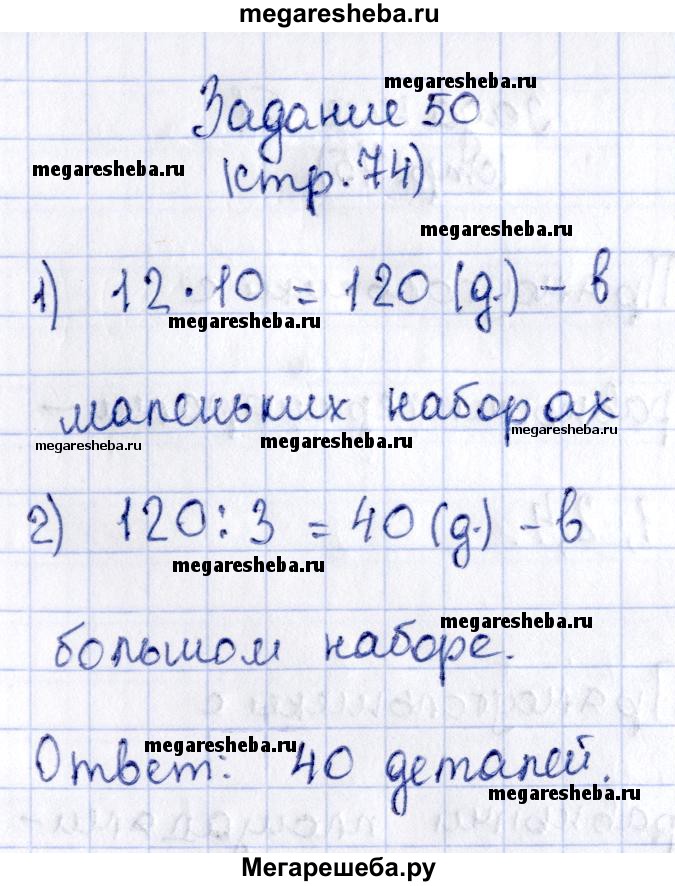 megaresheba.ru
megaresheba.ru
Задание 50
megaresheba.ru
(стр. 74)
megaresheba.ru
1) 12 · 10 = 120 (д.) - в
megaresheba.ru
маленьких наборах
megaresheba.ru
megaresheba.ru
megaresheba.ru
2) 120 : 3 = 40 (д.) - в
megaresheba.ru
megaresheba.ru
большом наборе.
megaresheba.ru
Ответ: 40 деталей.
megaresheba.ru
Мегарешеба.ру